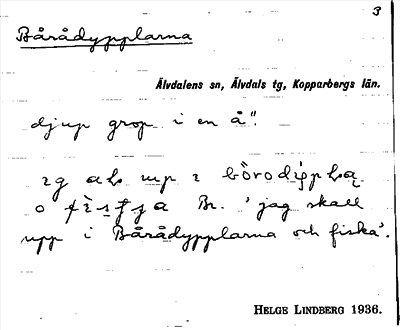 3
Bårådypplarna
Älvdalens sn, Älvdals tg, Kopparbergs län.
djup grop i en å".
up
o Br. 'jag skall
upp i Bårådypplarna och fiska'.
HELGE LINDBERG 1936.